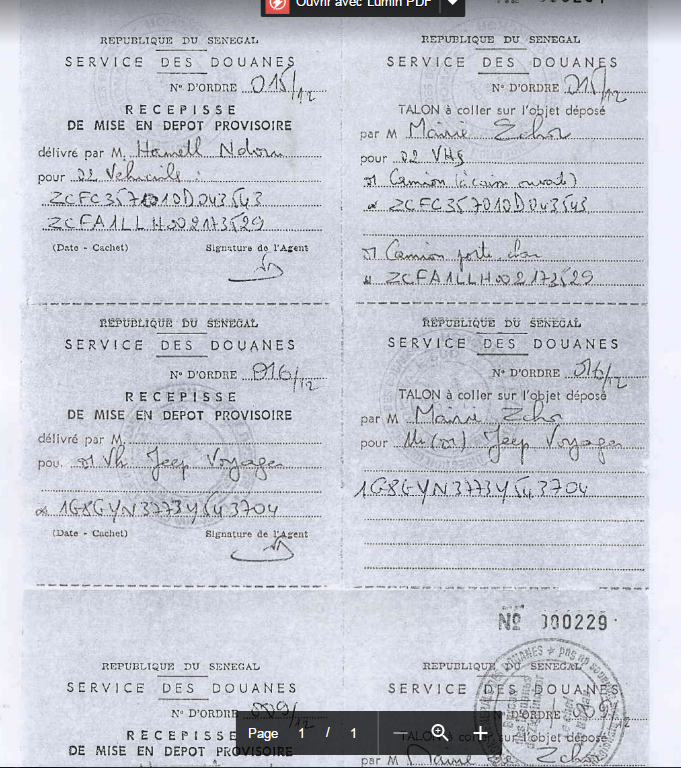 Ouvrir avec Lumin PDF
REPUBLIQUE DU SENEGAL
SERVICE DES DOUANES
N° D'ORDRE 015/12
RECEPISSE
DE MISE EN DEPOT PROVISOIRE
délivré par M. Hamett Ndom
pour 02 Vehicule :
ZCFC357010D043543
ZCFA1LLH002173529
(Date - Cachet) Signature de l'Agent
REPUBLIQUE DU SENEGAL
SERVICE DES DOUANES
N° D'ORDRE 015/12
TALON à coller sur l'objet déposé
par M Mairie
pour 02 VHS
01 Camion
ZCFC357010D043543
01 Camion porte char
ZCFA1LLH002173529
REPUBLIQUE DU SENEGAL
SERVICE DES DOUANES
N° D'ORDRE 016/12
RECEPISSE
DE MISE EN DEPOT PROVISOIRE
délivré par M.
pou. 01 Vh Jeep Voyager
1G8GYN3773Y543704
(Date - Cachet) Signature de l'Agent
REPUBLIQUE DU SENEGAL
SERVICE DES DOUANES
N° D'ORDRE 016/12
TALON à coller sur l'objet déposé
par M Mairie
pour Un (01) Jeep Voyager
1G8GYN3773Y543704
REPUBLIQUE DU SENEGAL
SERVICE DES DOUANES
N° D'ORDRE 009/12
RECEPISSE
DE MISE EN DEPOT PROVISOIRE
N° 000229
REPUBLIQUE DU SENEGAL
SERVICE DES DOUANES
N° D'ORDRE 009/12
TALON à coller sur l'objet déposé
par M Mairie
Page 1 / 1